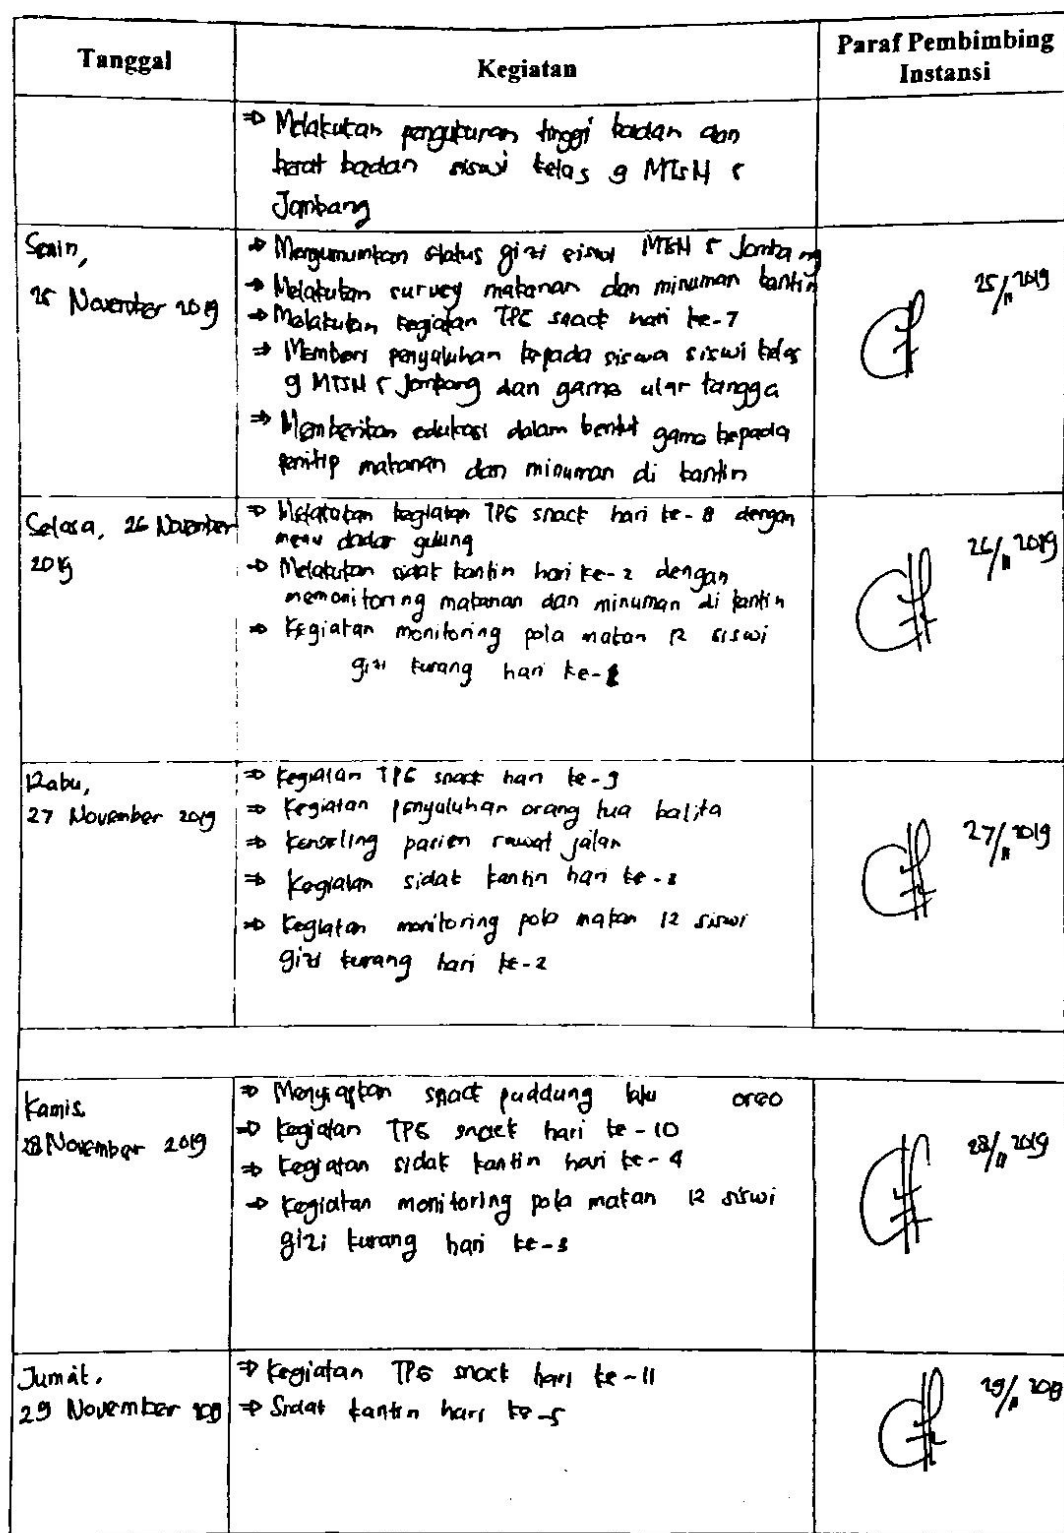 Tanggal
Kegiatan
Paraf Pembimbing
Instansi
⇒ Melakukan pengukuran tinggi badan dan
berat badan siswi kelas 9 MTsN 5
Jombang
Senin,
25 November 2019
⇒ Mengumumkan status gizi siswi MTsN 5 Jombang
⇒ Melakukan survey makanan dan minuman kantin
⇒ Melakukan kegiatan TPG snack hari ke-7
⇒ Memberi penyuluhan kepada siswa siswi kelas
9 MTsN 5 Jombang dan game ular tangga
⇒ Memberikan edukasi dalam bentuk game kepada
penitip makanan dan minuman di kantin
25/11 2019
Selasa, 26 November
2019
⇒ Melakukan kegiatan TPG snack hari ke-8 dengan
menu dadar gulung
⇒ Melakukan sidak kantin hari ke-2 dengan
memonitoring makanan dan minuman di kantin
⇒ Kegiatan monitoring pola makan 12 siswi
gizi kurang hari ke-1
26/11 2019
Rabu,
27 November 2019
⇒ Kegiatan TPG snack hari ke-9
⇒ Kegiatan penyuluhan orang tua balita
⇒ Konseling pasien rawat jalan
⇒ Kegiatan sidak kantin hari ke-3
⇒ Kegiatan monitoring pola makan 12 siswi
gizi kurang hari ke-2
27/11 2019
Kamis,
28 November 2019
⇒ Menyiapkan snack puddung oreo
⇒ Kegiatan TPG snack hari ke-10
⇒ Kegiatan sidak kantin hari ke-4
⇒ Kegiatan monitoring pola makan 12 siswi
gizi kurang hari ke-3
28/11 2019
Jumat,
29 November 2019
⇒ Kegiatan TPG snack hari ke-11
⇒ Sidak kantin hari ke-5
29/11 2019